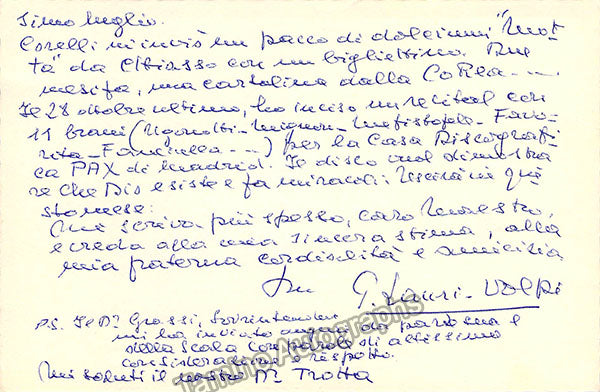 simo luglio.
Corelli m'inviò un pacco di dolciumi "Mot-
ta" da Chiasso con un bigliettino. Due
mesi fa, una cartolina dalla Corea....
Il 28 ottobre ultimo, ho inciso un recital con
11 brani (Ugonotti-Mignon-Mefistofele-Favo-
rita-Fanciulla....) per la Casa Discografi-
ca PAX di Madrid. Il disco vuol dimostra
re che Dio esiste e fa miracoli. Uscirà in que
sto mese.
Mi scriva più spesso, caro Maestro,
e creda alla mia sincera stima, alla
mia fraterna cordialità e amicizia
Suo G. Lauri-Volpi
P.S. Il Dr Grossi, Sovrintendente
mi ha inviato auguri da parte sua e
della Scala con parole di altissimo
considerazione e rispetto.
Mi saluti il nostro Mº Trotta
Tamino Autographs